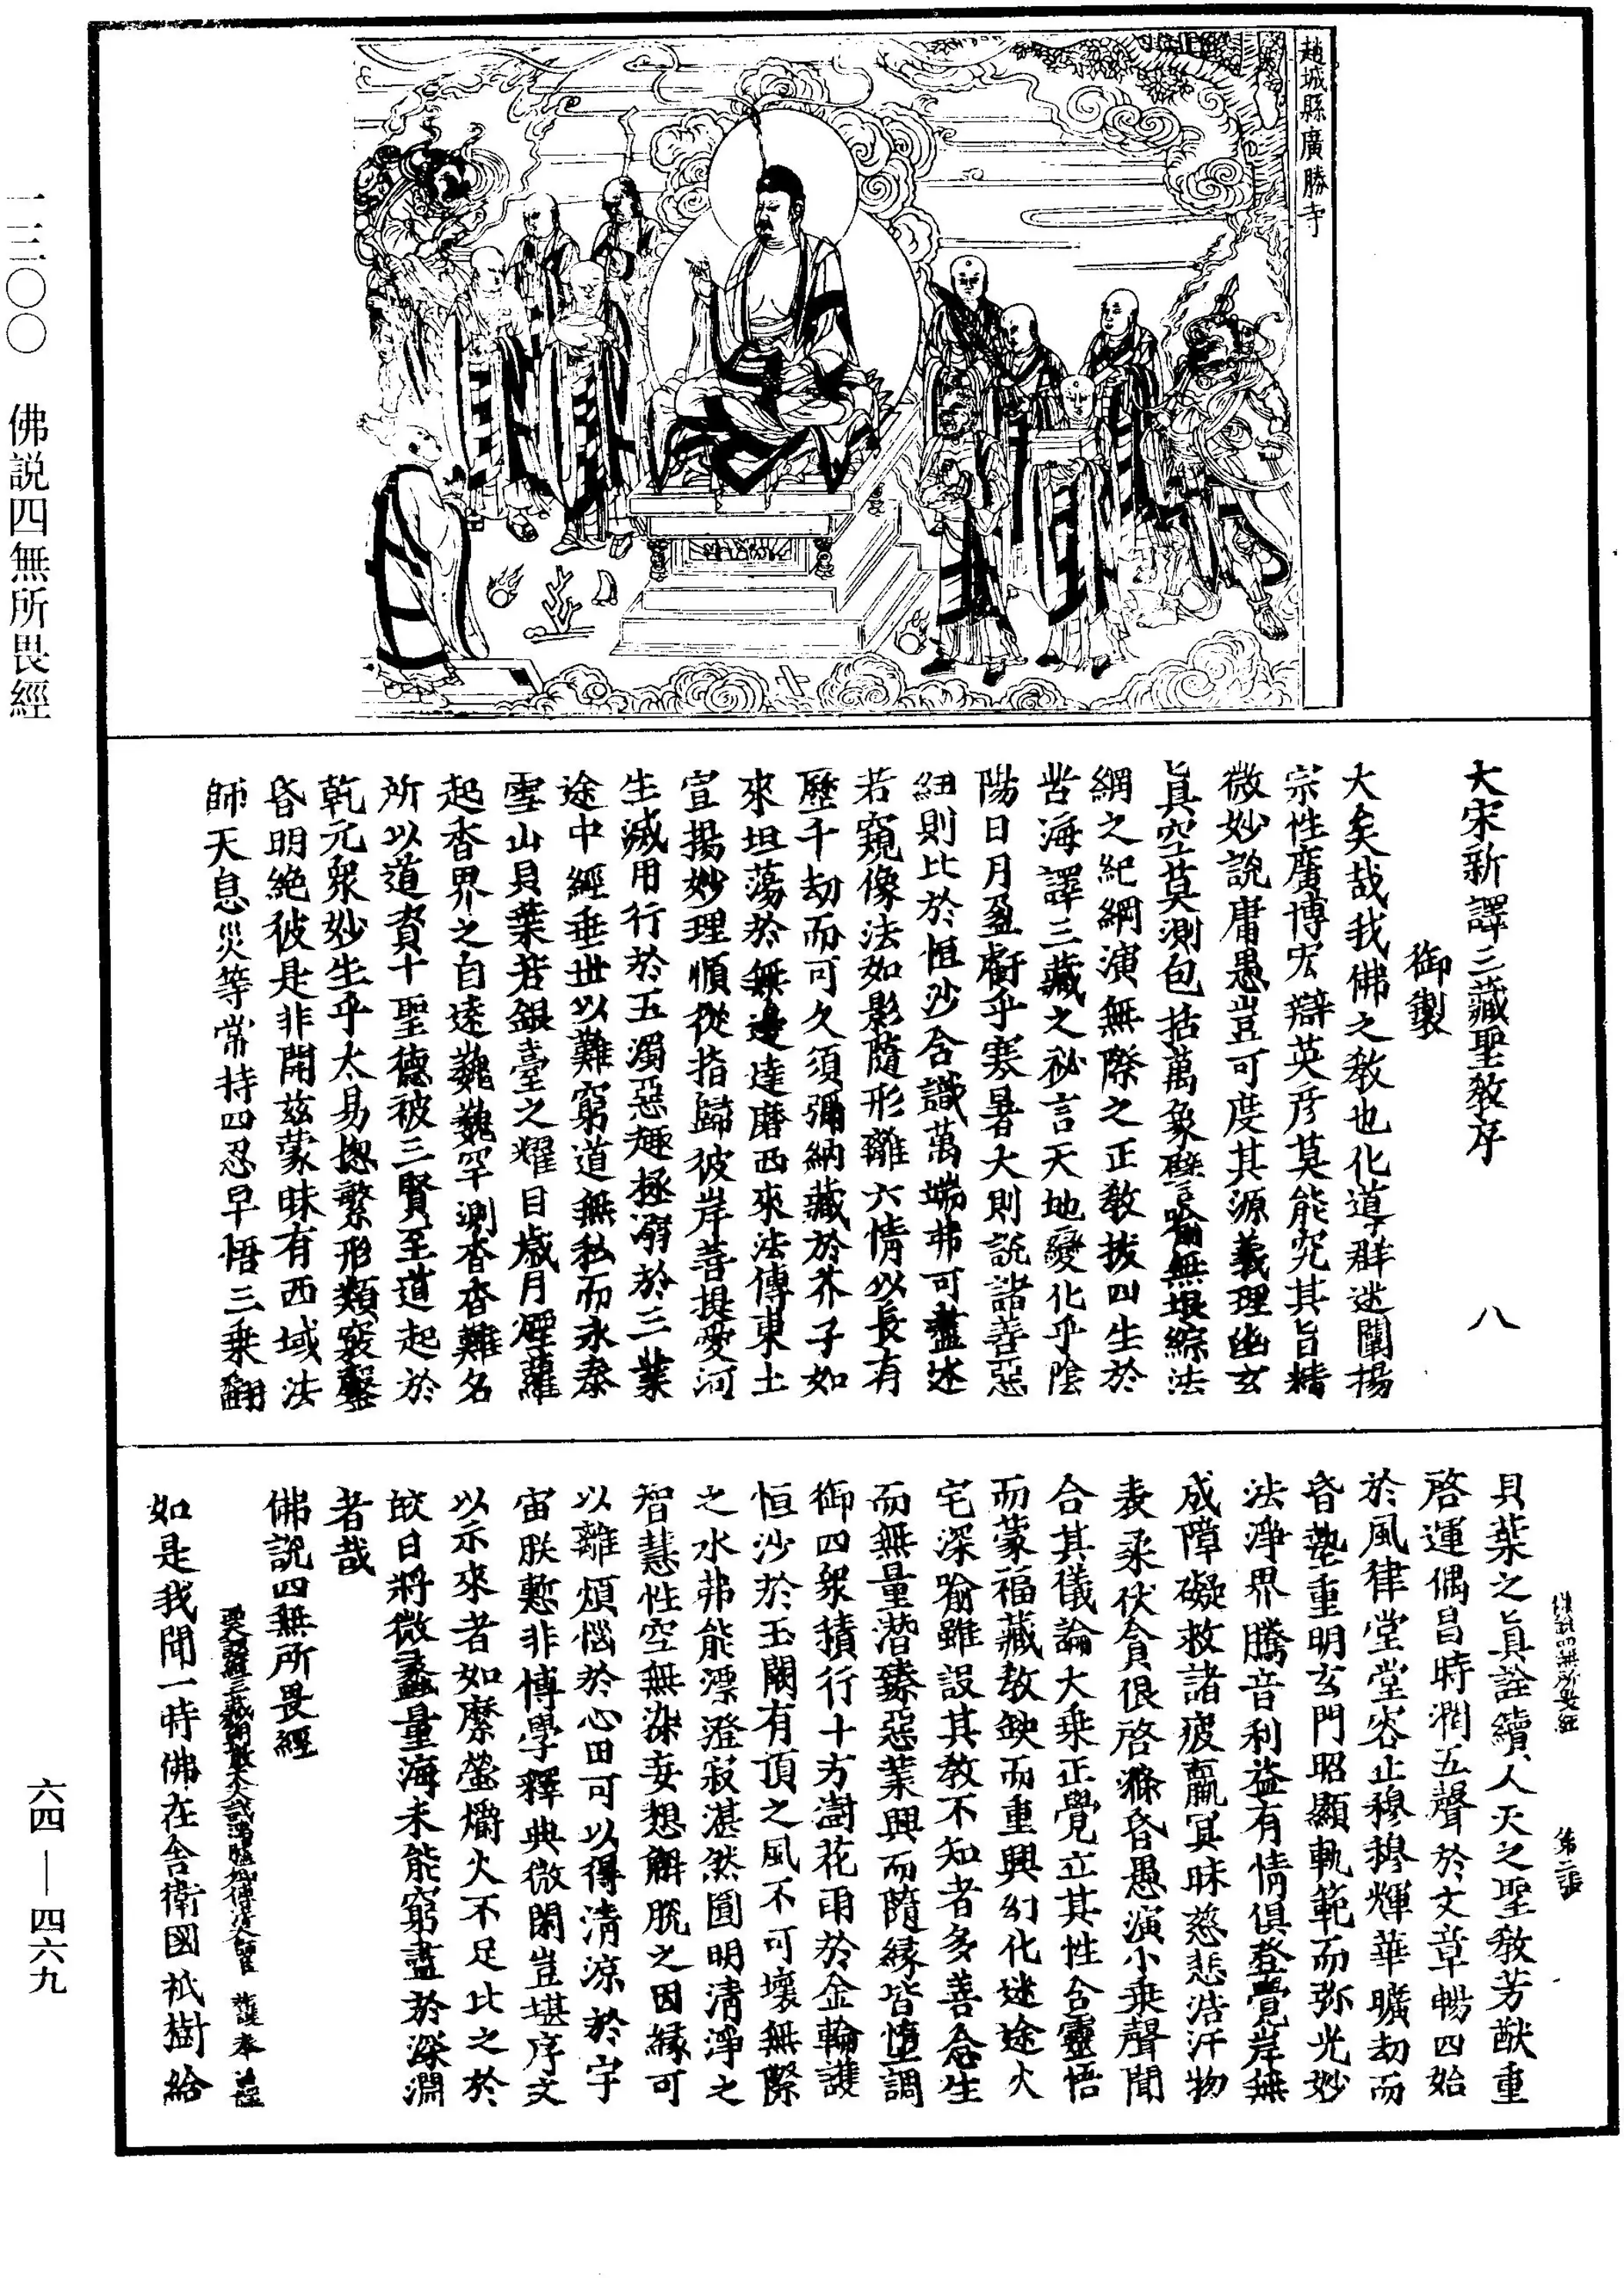 趙城縣廣勝寺
大宋新譯三藏聖教序 八
御製
大矣哉我佛之教也化導群迷闡揚
宗性廣博宏辯英彥莫能究其旨精
微妙說庸愚豈可度其源義理幽玄
真空莫測包括萬象譬喻無垠綜法
網之紀綱演無際之正教拔四生於
苦海譯三藏之祕言天地變化乎陰
陽日月盈虧乎寒暑大則說諸善惡
細則比於恒沙含識萬端弗可盡述
若窺像法如影隨形離六情以長有
歷千劫而可久須彌納藏於芥子如
來坦蕩於無邊達磨西來法傳東土
宣揚妙理順從指歸彼岸菩提愛河
生滅用行於五濁惡趣極溺於三業
途中經垂世以難窮道無私而永泰
雪山貝葉若銀臺之耀目歲月煙蘿
起香界之自遠巍巍罕測杳杳難名
所以道資十聖德被三賢至道起於
乾元眾妙生乎太易揔繁形類竅鑿
昏明絕彼是非開茲蒙昧有西域法
師天息災等常持四忍早悟三乘翻
佛說四無所畏經 第二張
貝葉之真詮續人天之聖教芳猷重
啓運偶昌時潤五聲於文章暢四始
於風律堂堂容止穆穆輝華曠劫而
昏墊重明玄門昭顯軌範而弥光妙
法淨界騰音利益有情俱登覺岸無
成障礙救諸疲羸冥昧慈悲浩汗物
表柔伏貪很啓滌昏愚演小乘聲聞
合其儀論大乘正覺立其性含靈悟
而蒙福藏教缺而重興幻化迷途火
宅深喻雖設其教不知者多善念生
而無量潛臻惡業興而隨緣皆墮調
御四眾積行十方澍花雨於金輪護
恒沙於玉闕有頂之風不可壞無際
之水弗能漂澄寂湛然圓明清淨之
智慧性空無染妄想解脫之因緣可
以離煩惱於心田可以得清涼於宇
宙朕慙非博學釋典微閑豈堪序文
以示來者如縻螢爝火不足比之於
皎日將微蠡量海未能窮盡於深淵
者哉
佛說四無所畏經
如是我聞一時佛在舍衛國祇樹給
一三〇〇 佛説四無所畏經
六四—四六九